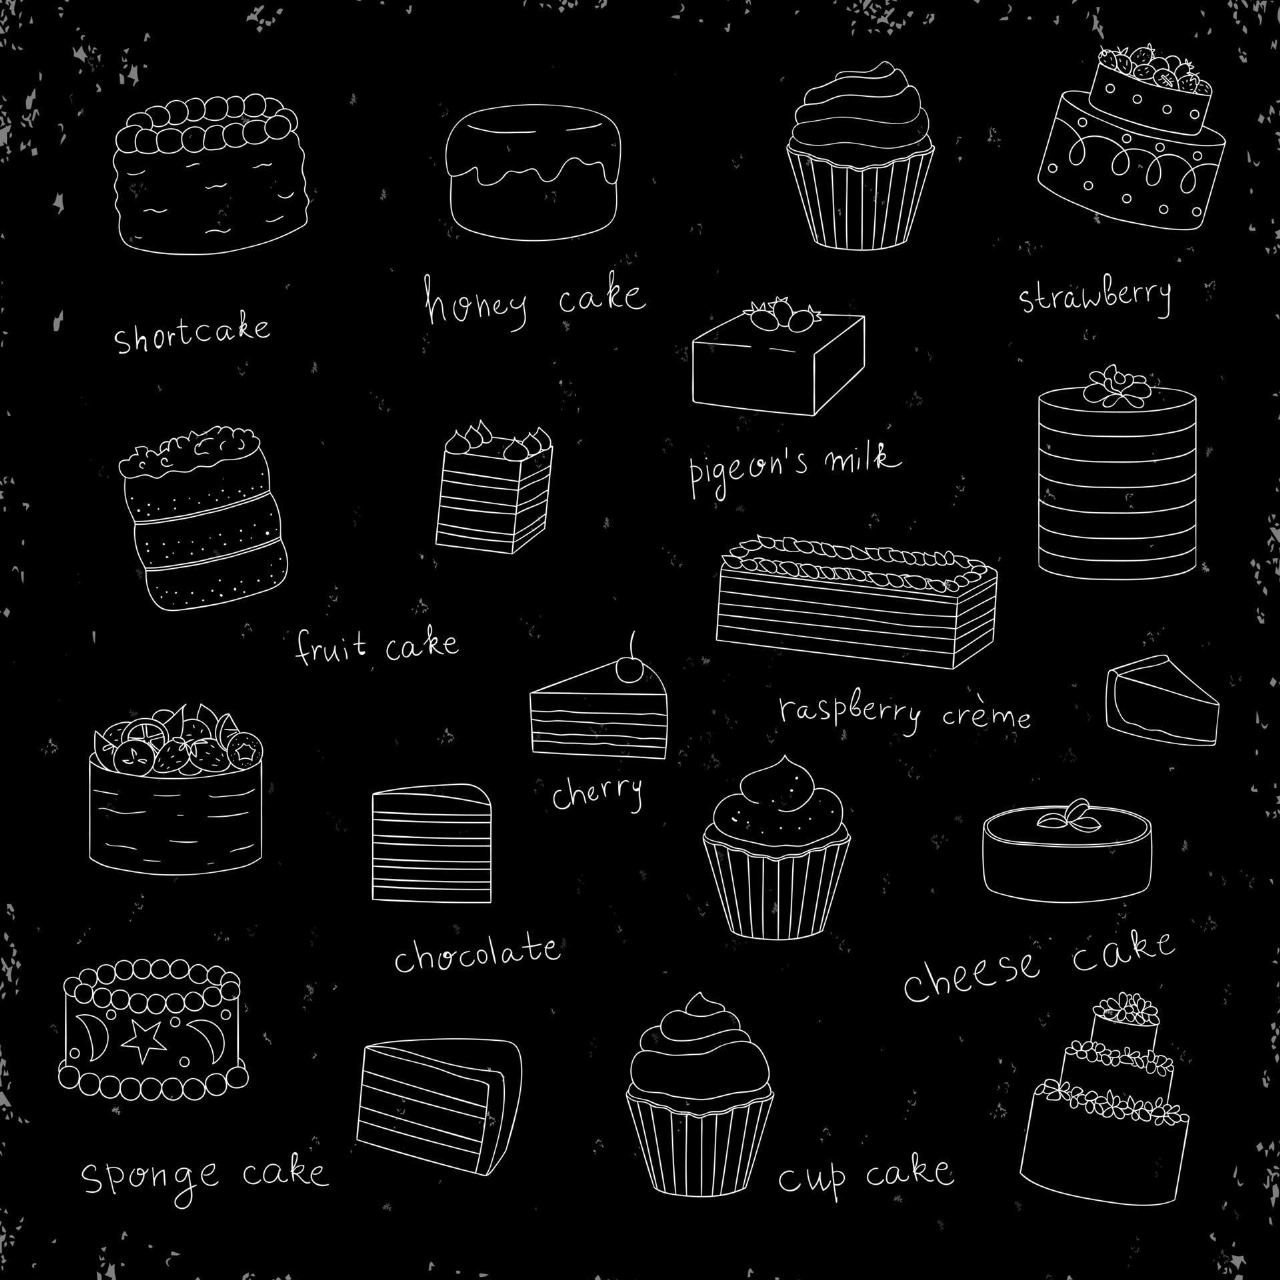 shortcake
honey cake
strawberry
pigeon's milk
fruit cake
raspberry crème
cherry
chocolate
cheese cake
sponge cake
cup cake